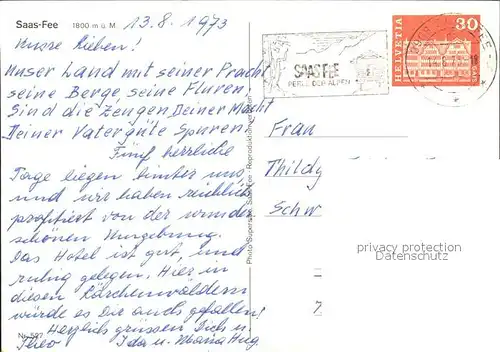 Saas-Fee 1800 m ü. M. 13.8.1973
Unsre Lieben!
Unser Land mit seiner Pracht
seine Berge, seine Fluren,
Sind die Zeugen Deiner Macht
Deiner Vatergüte Spuren.
Fünf herrliche
Tage liegen hinter uns
und wir haben reichlich
profitiert von der wunder-
schönen Umgebung.
Das Hotel ist gut, und
ruhig gelegen. Hier in
diesen Lärchenwäldern
würde es Dir auch gefallen!
Herzlich grüssen Dich u.
Theo Ida u. Maria Hug
Nr. 507
SAAS FEE
PERLE DER ALPEN
HELVETIA
30
Frau
Thildy
Schw
privacy protection
Datenschutz